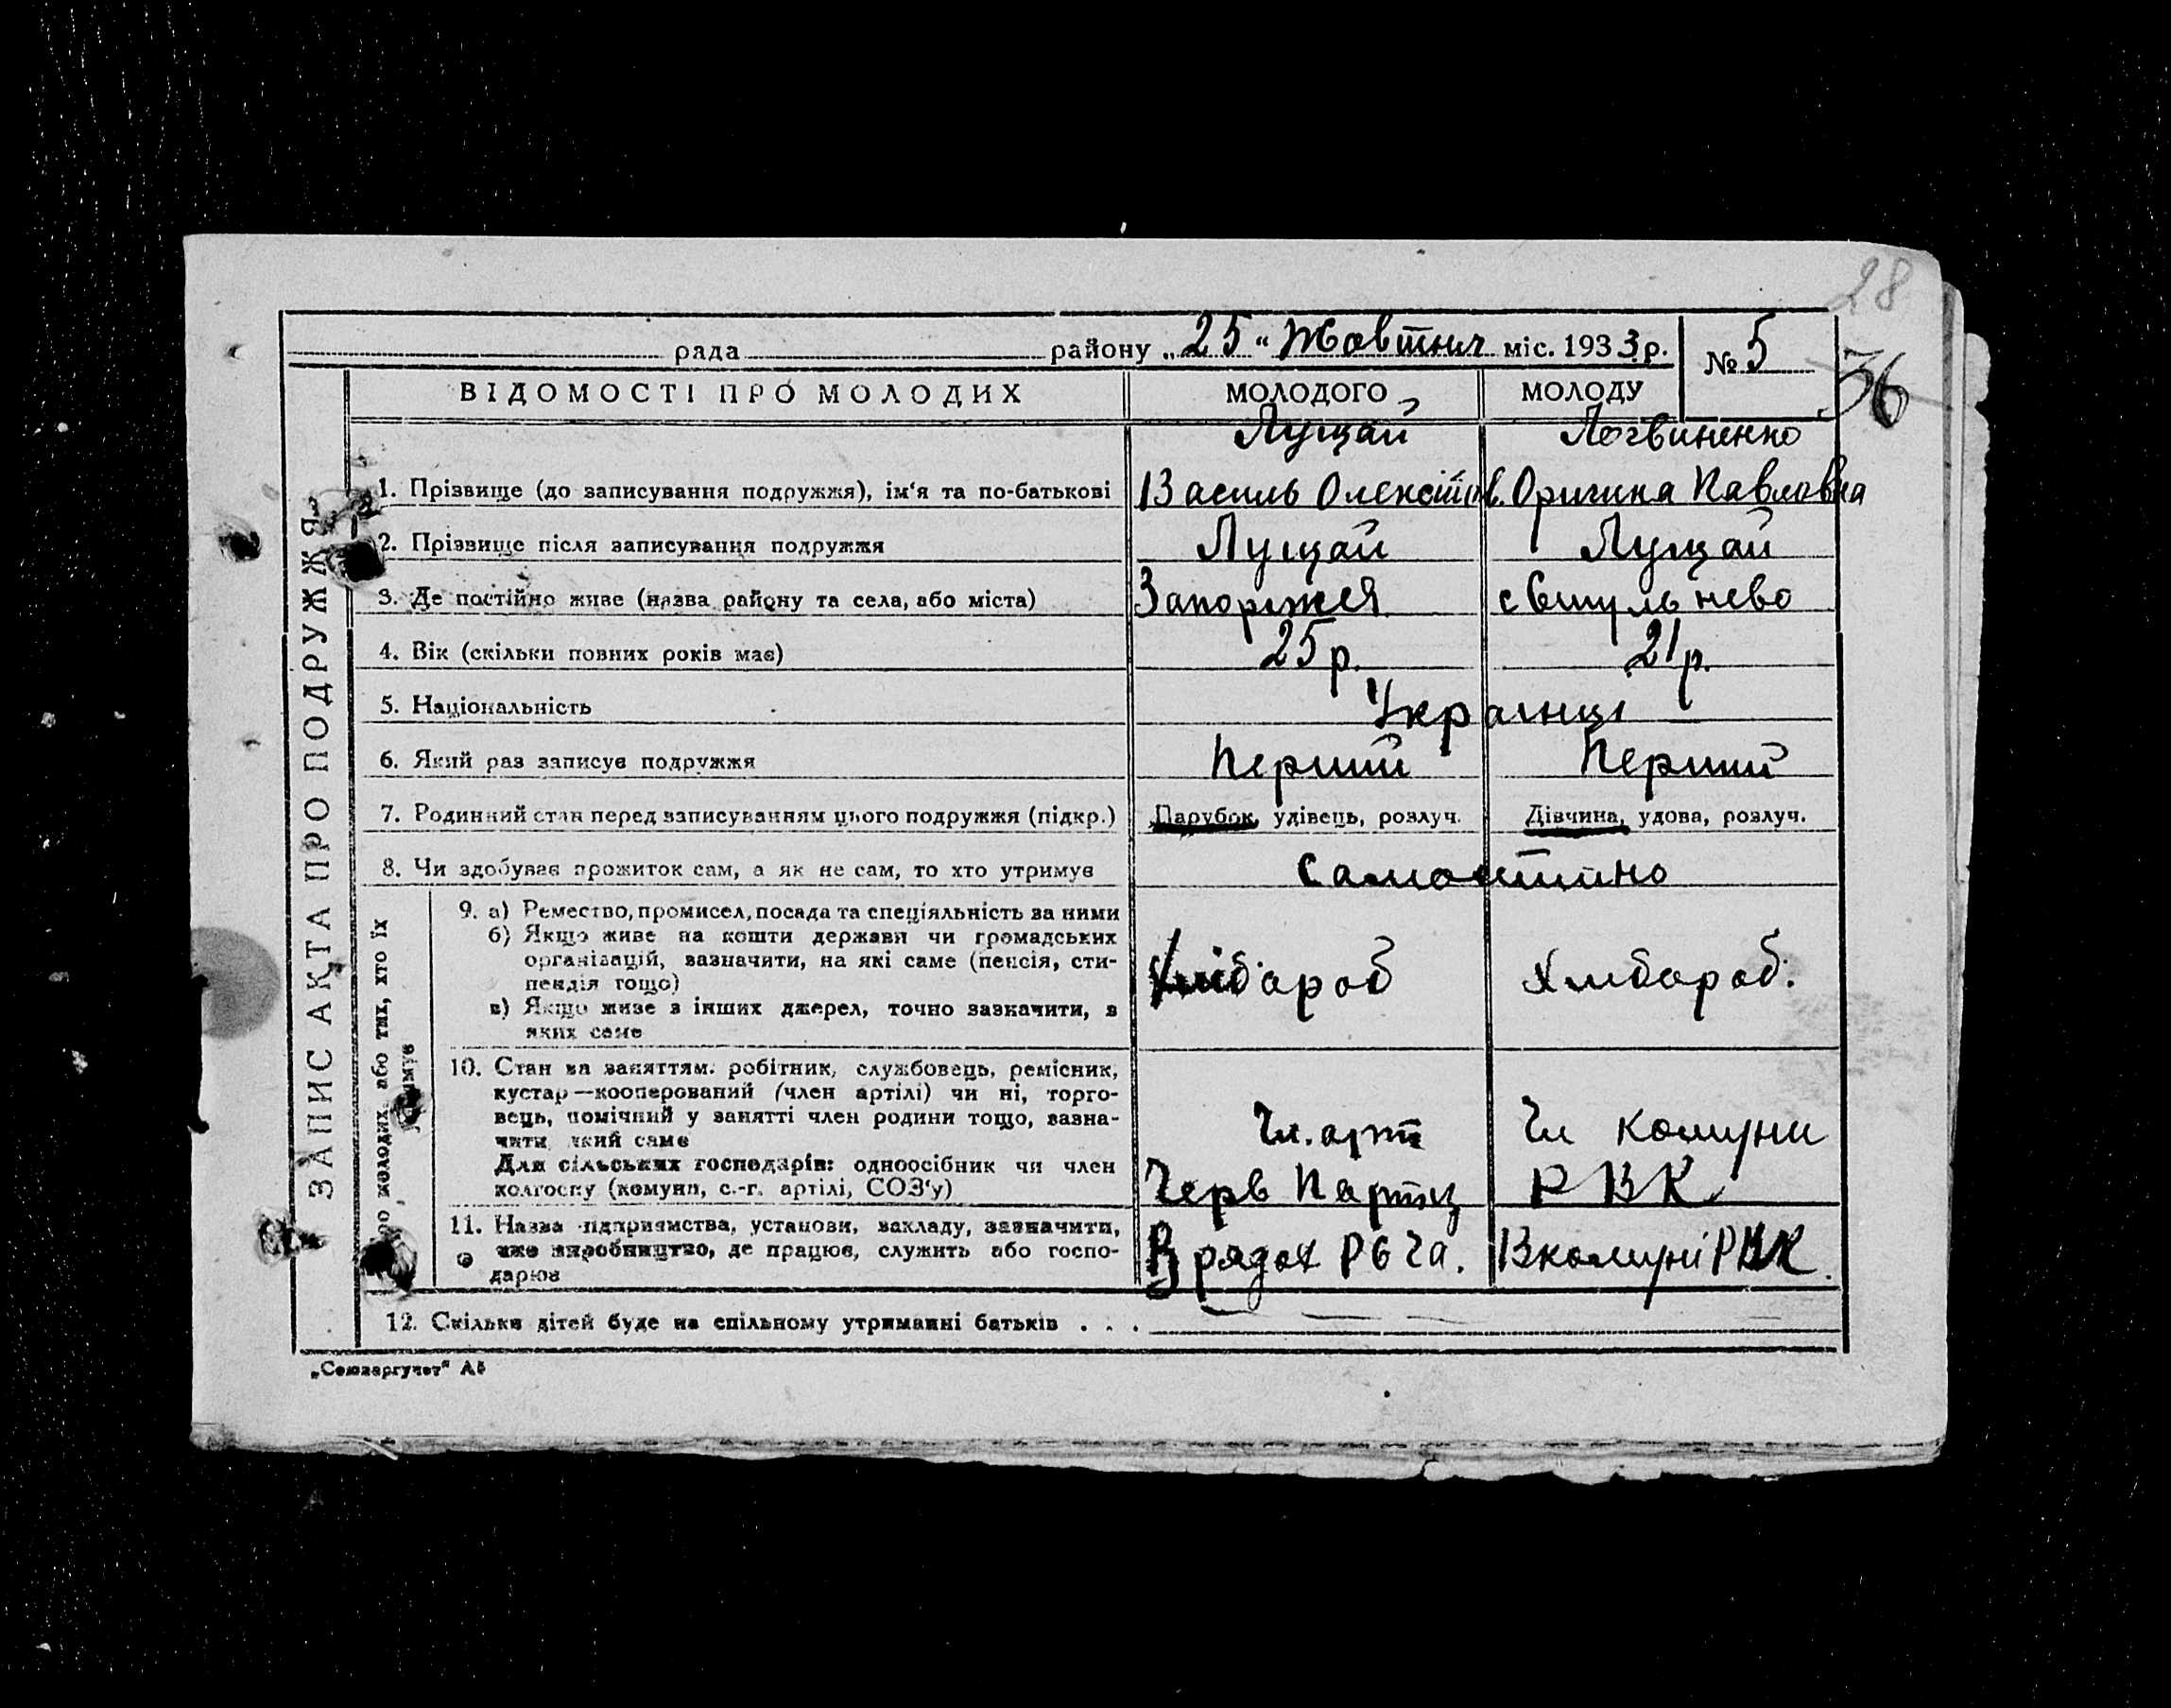 28
рада района „25“ Жовтня міс. 1933 р. № 5
36
ВІДОМОСТІ ПРО МОЛОДИХ МОЛОДОГО МОЛОДУ
Лущай Логвиненко
1. Прізвище (до записування подружжя), ім'я та по-батькові Василь Олексійов. Оричина Павловна
2. Прізвище після записування подружжя Лущай Лущай
3. Де постійно живе (назва району та села, або міста) Запоріжея
4. Вік (скільки повних років має) 25 р. 21 р.
5. Національність Українці
6. Який раз записує подружжя Перший Перший
7. Родинний стан перед записуванням цього подружжя (підкр.) Парубок, удівець, розлуч. Дівчина, удова, розлуч.
8. Чи здобуває прожиток сам, а як не сам, то хто утримує Самостійно
9. а) Ремество, промисел, посада та спеціяльність за ними
б) Якщо живе на кошти держави чи громадських
організацій, зазначити, на які саме (пенсія, сти-
пендія тощо) Хліб'ороб Хлібороб.
в) Якщо живе з інших джерел, точно зазначити, з
яких саме
10. Стан за заняттям: робітник, службовець, ремісник,
кустар—кооперований (член артілі) чи ні, торго-
вець, помічний у занятті член родини тощо, зазна-
чити який саме Чл. арт Чл комуни
Для сільських господарів: одноосібник чи член
колгоспу (комуни, с.-г. артілі, СОЗ'у) Черв Партиз РВК
11. Назва підприємства, установи, закладу, зазначити,
яке виробництво, де працює, служить або госпо-
дарює В рядах РСЧа. В комуні РВК.
12. Скільки дітей буде на спільному утриманні батьків . . .
„Союзоргучет“ А5
ЗАПИС АКТА ПРО ПОДРУЖЖЯ
про молодих або тих, хто їх
утримує